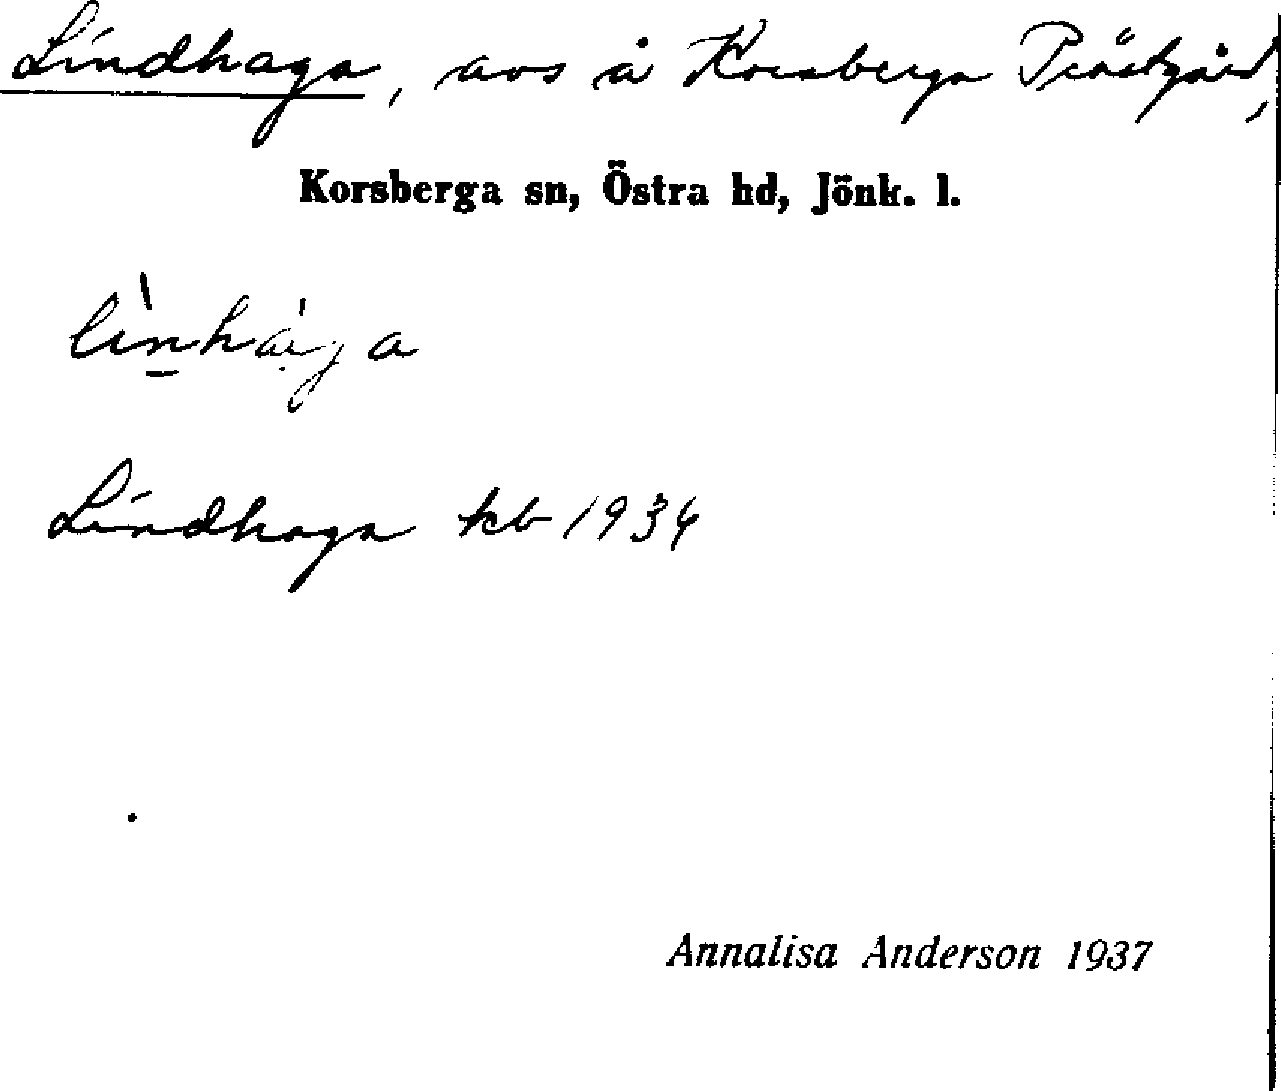 Lindhaga, avs å Korsberga Prästgård,
Korsberga sn, Östra hd, Jönk. l.
Lindhaga kb 1934
Annalisa Anderson 1937